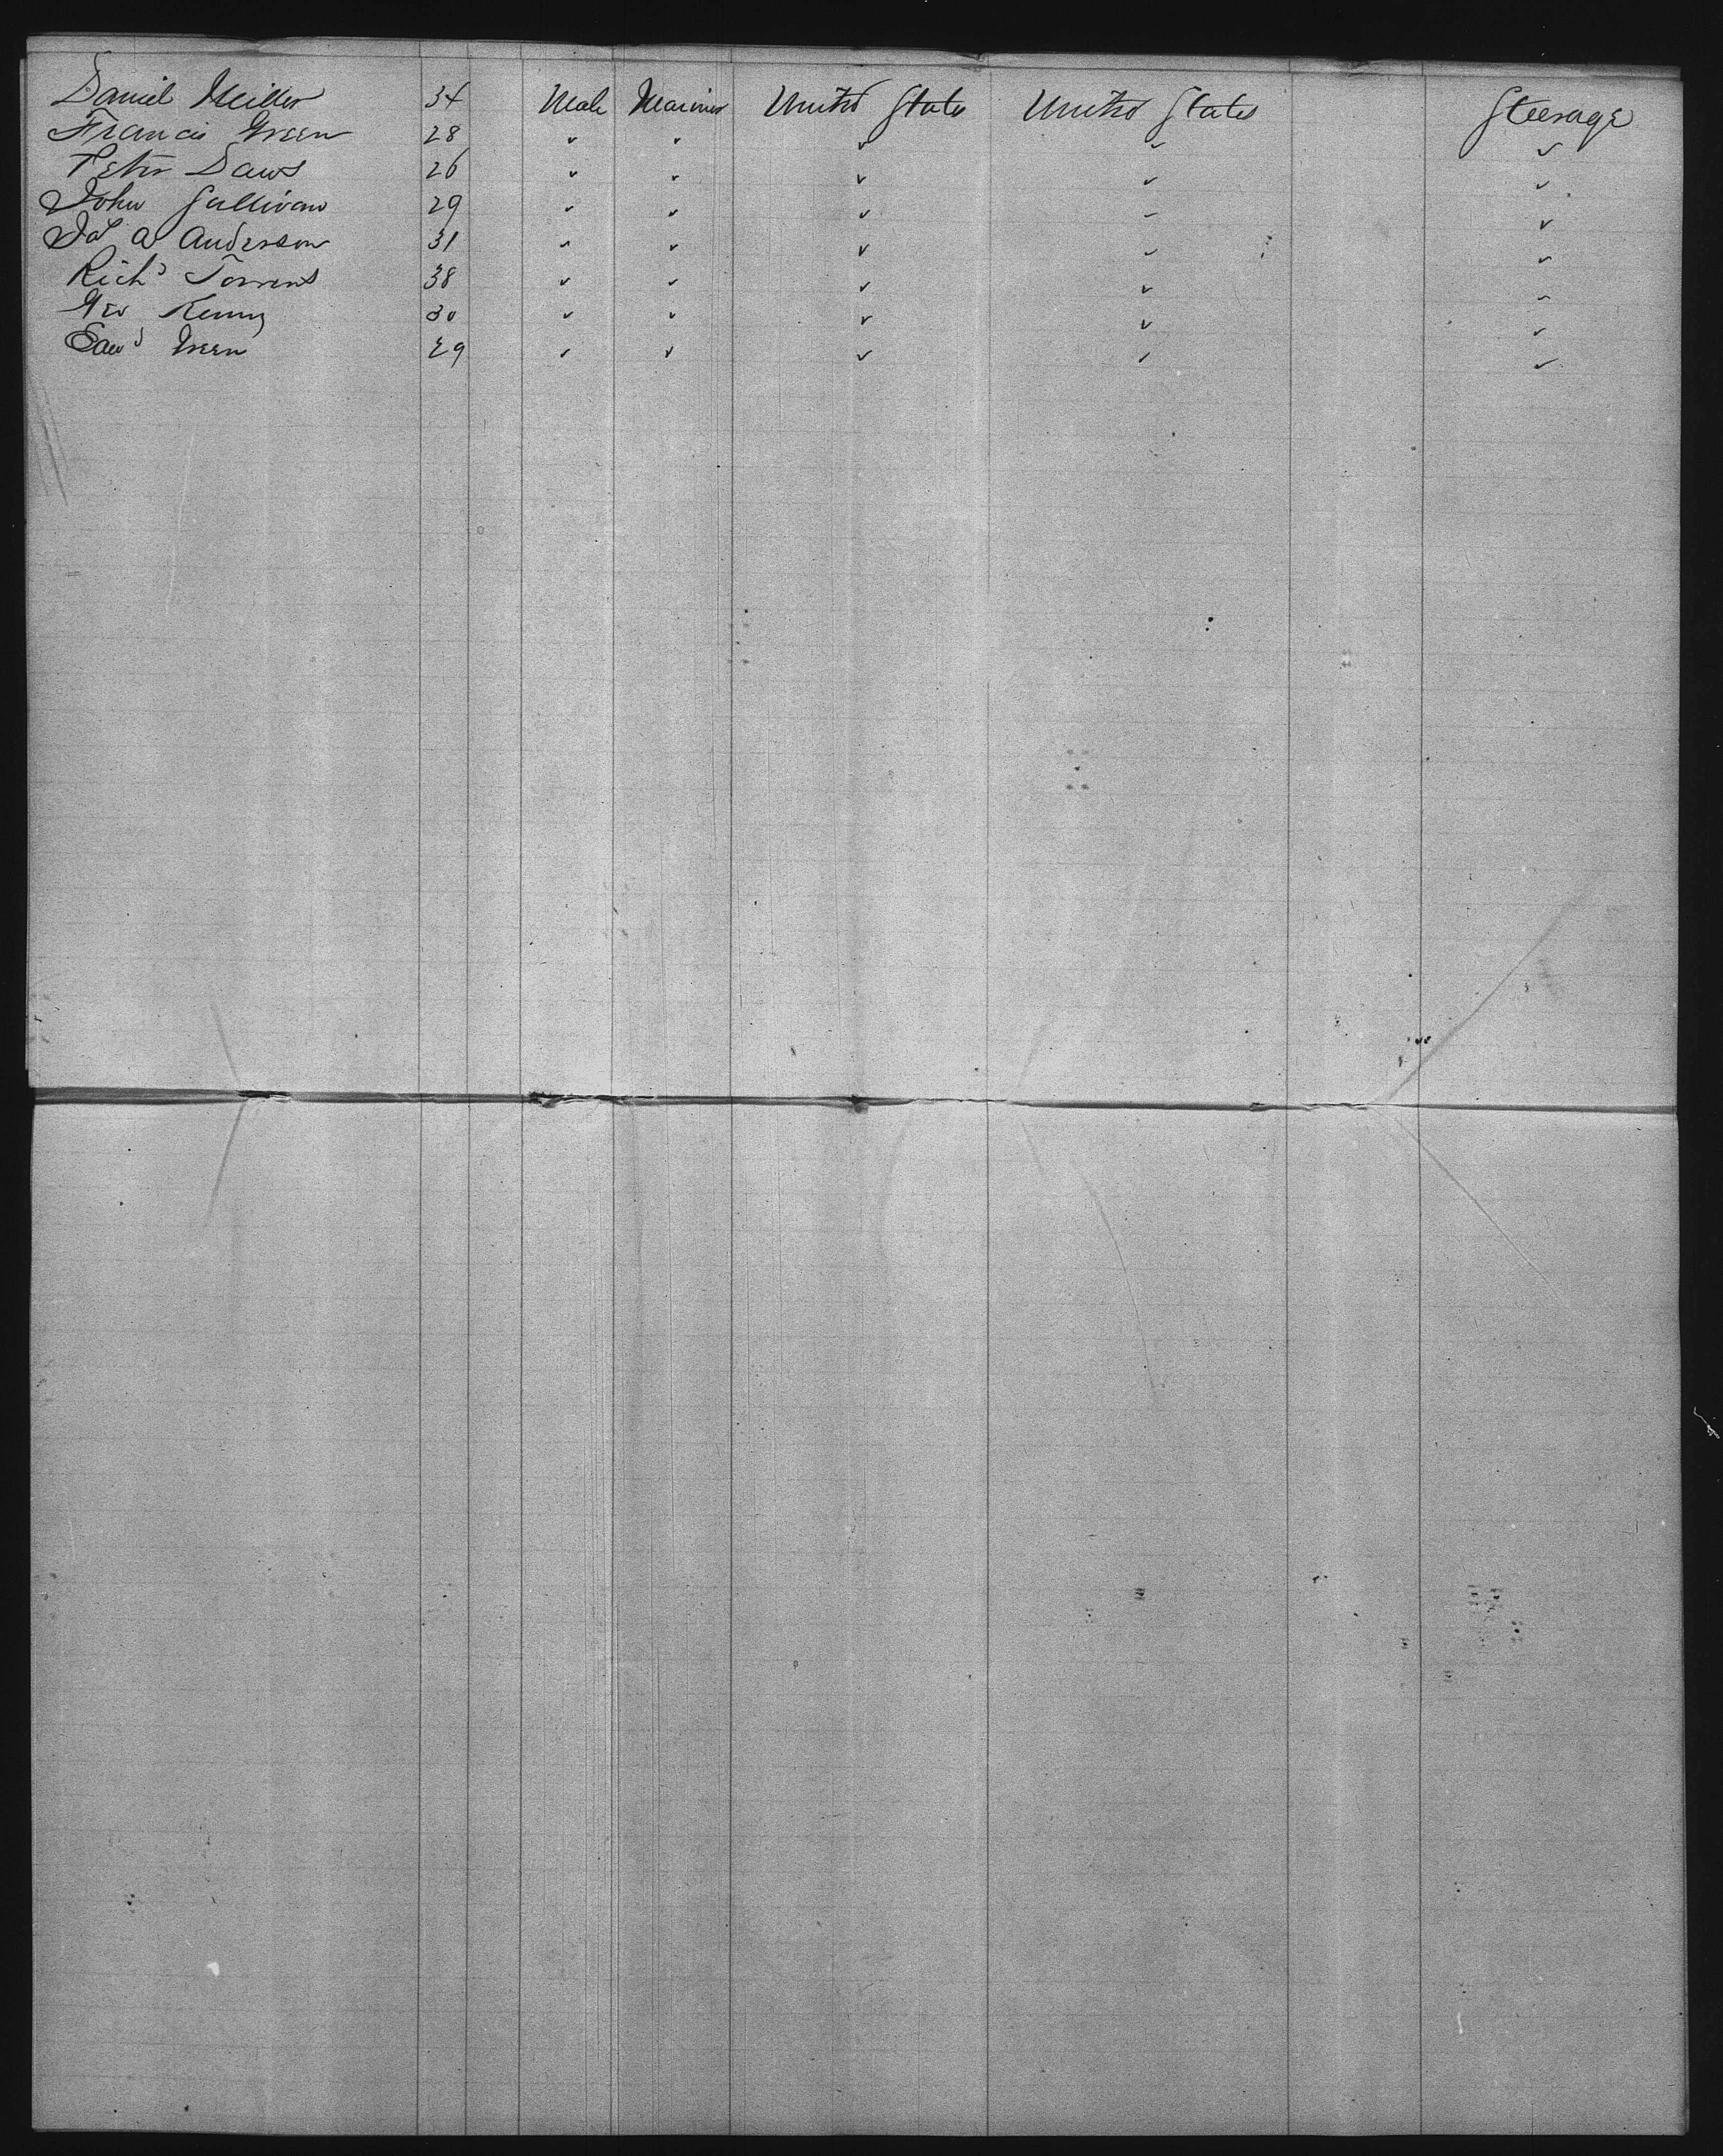 Daniel Miller 34 Male Mariner United States United States Steerage
Francis Green 28 " " " " "
Peter Daws 26 " " " " "
John Sullivan 29 " " " " "
A Anderson 31 " " " " "
Richd Torrens 38 " " " " "
Geo Kenny 30 " " " " "
Edwd Green 29 " " " " "